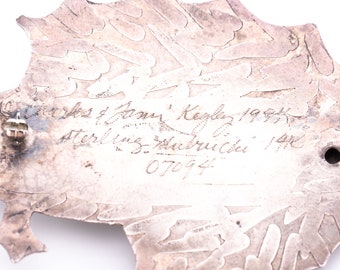 Charles & Jan Kegley 198
sterling Shibuichi 14K
07094